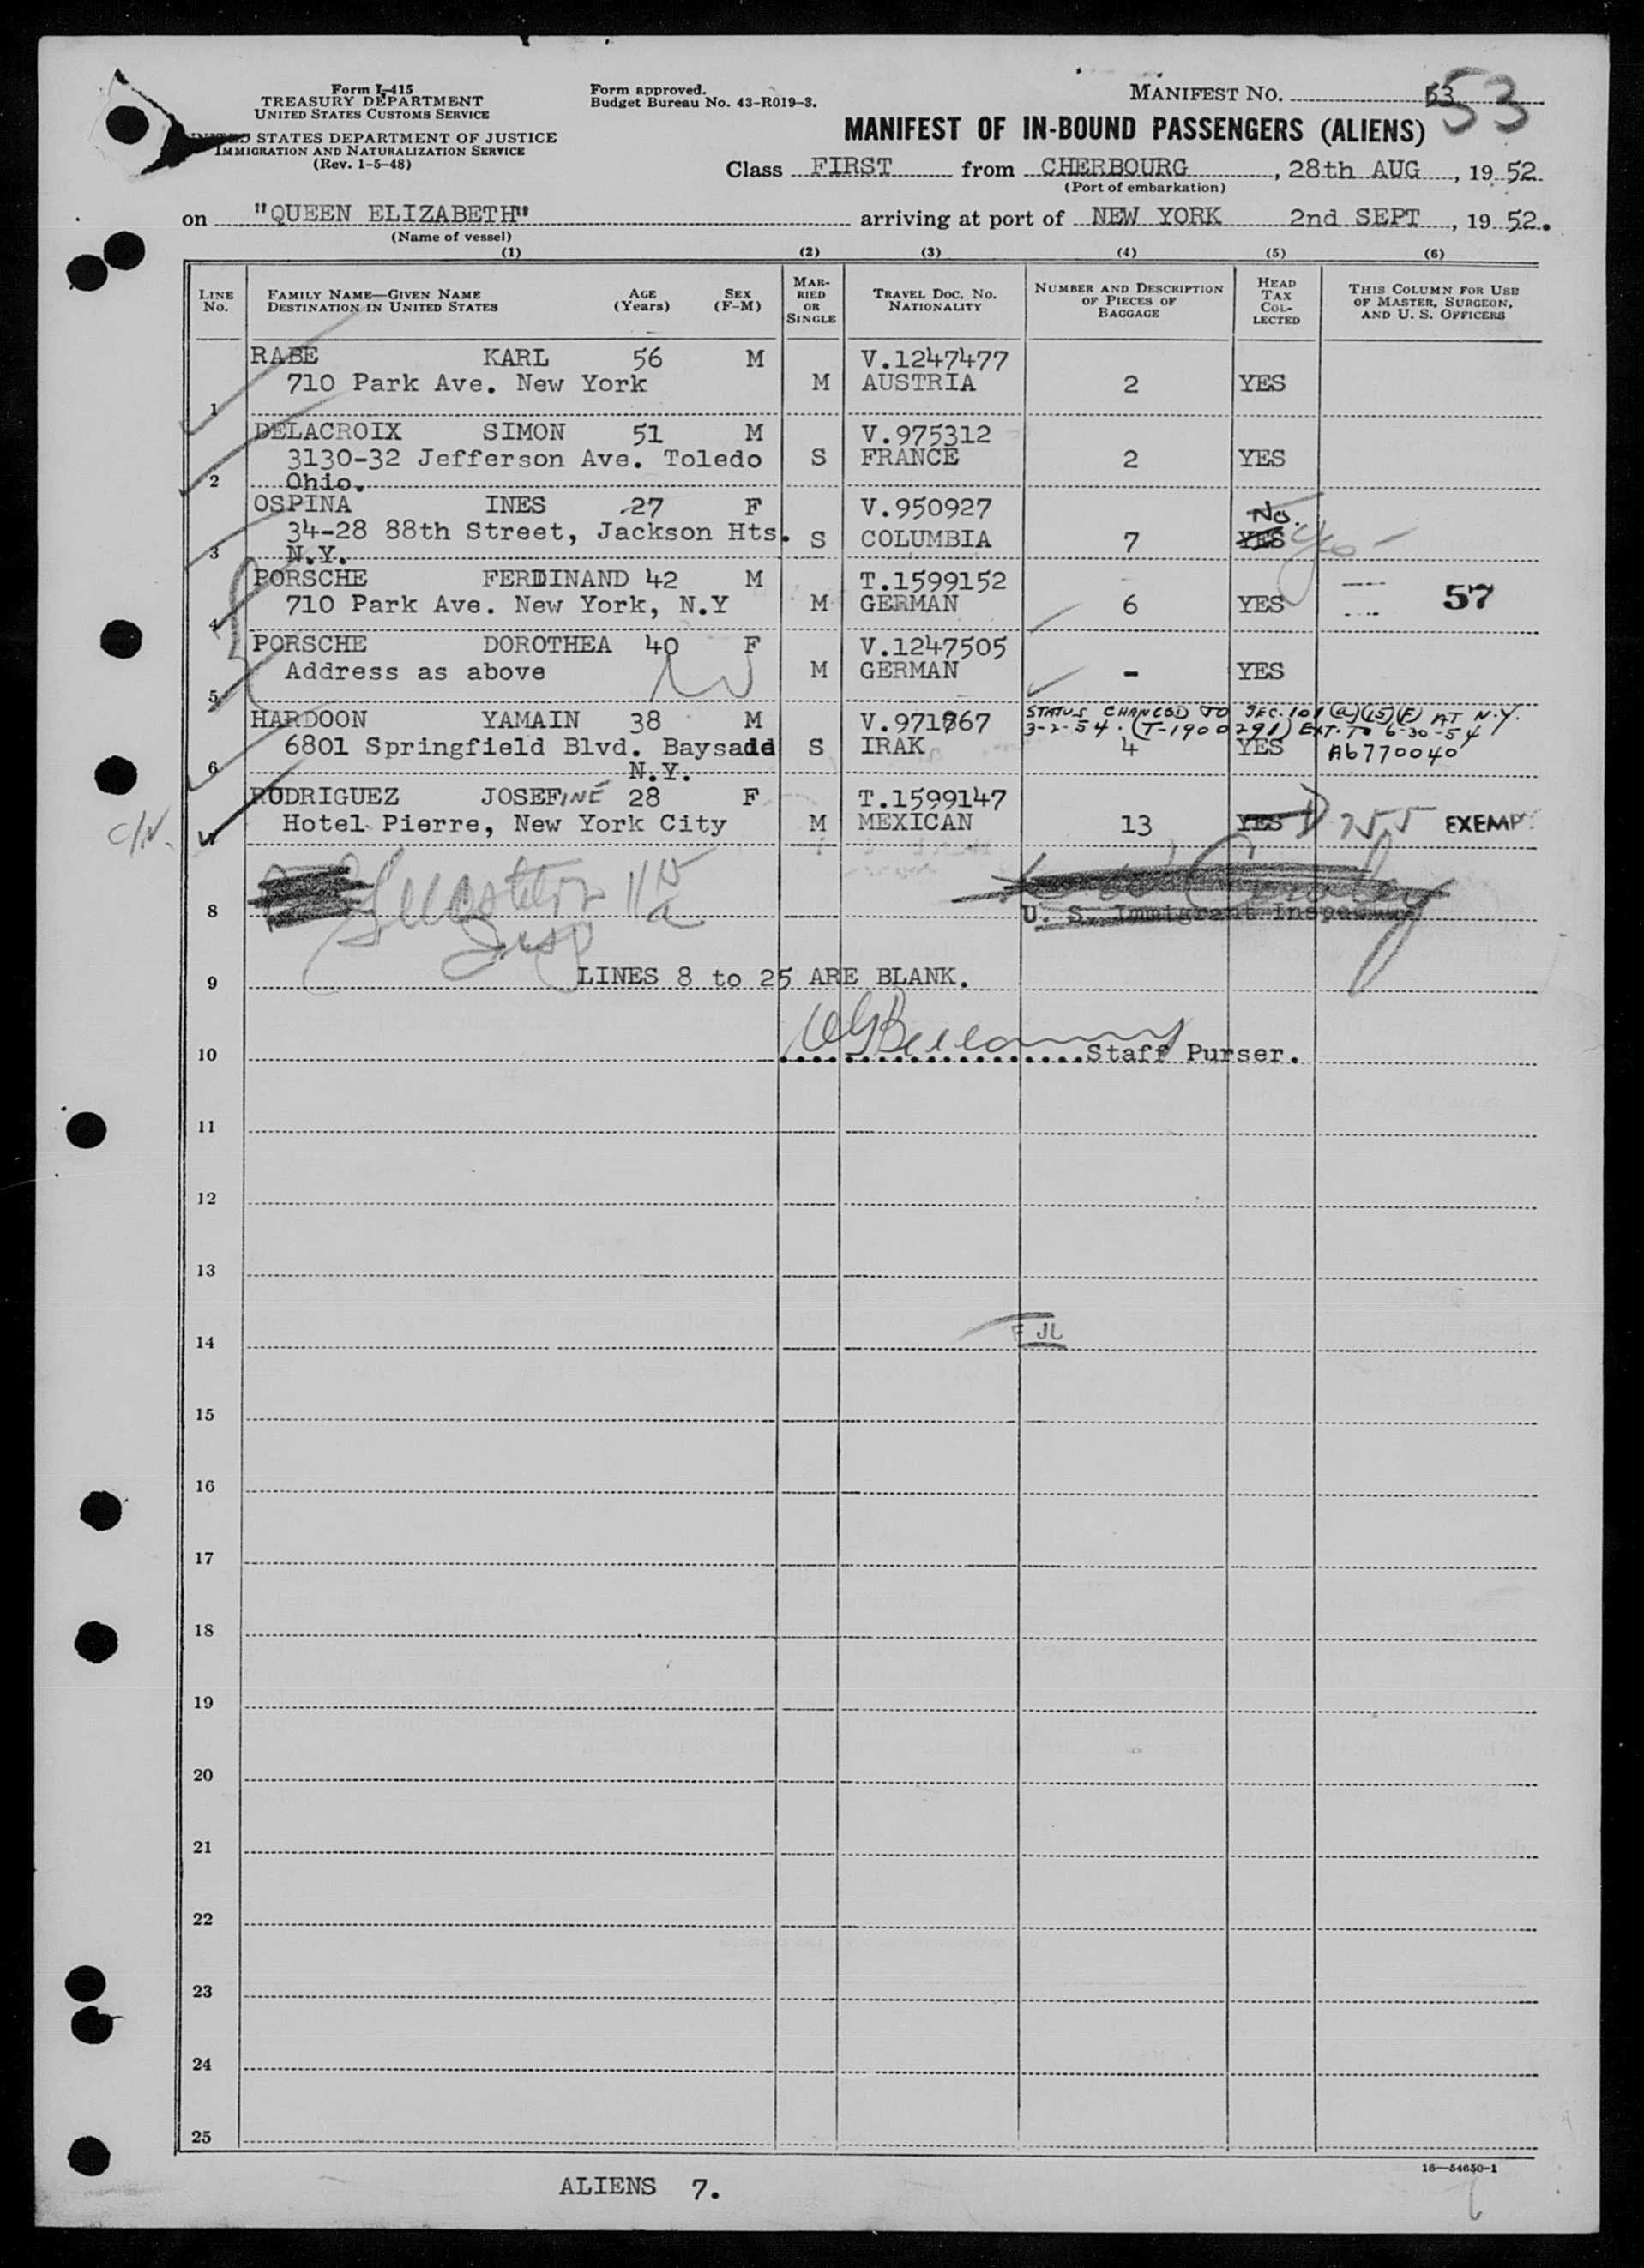 Form I-415
TREASURY DEPARTMENT
UNITED STATES CUSTOMS SERVICE
UNITED STATES DEPARTMENT OF JUSTICE
IMMIGRATION AND NATURALIZATION SERVICE
(Rev. 1-5-48)
Form approved.
Budget Bureau No. 43-R019-3.
MANIFEST NO. 53 53
MANIFEST OF IN-BOUND PASSENGERS (ALIENS)
Class FIRST from CHERBOURG, 28th AUG, 19 52
(Port of embarkation)
on "QUEEN ELIZABETH" arriving at port of NEW YORK 2nd SEPT, 19 52.
(Name of vessel)
(1) (2) (3) (4) (5) (6)
LINE NO.
FAMILY NAME—GIVEN NAME
DESTINATION IN UNITED STATES
AGE (Years)
SEX (F-M)
MARRIED OR SINGLE
TRAVEL DOC. NO.
NATIONALITY
NUMBER AND DESCRIPTION OF PIECES OF BAGGAGE
HEAD TAX COLLECTED
THIS COLUMN FOR USE OF MASTER, SURGEON, AND U. S. OFFICERS
RABE KARL 56 M V.1247477
710 Park Ave. New York M AUSTRIA 2 YES
1
DELACROIX SIMON 51 M V.975312
3130-32 Jefferson Ave. Toledo S FRANCE 2 YES
2 Ohio.
OSPINA INES 27 F V.950927 No.
34-28 88th Street, Jackson Hts. S COLUMBIA 7 YES Yes
3 N.Y.
PORSCHE FERDINAND 42 M T.1599152
710 Park Ave. New York, N.Y M GERMAN 6 YES 57
4
PORSCHE DOROTHEA 40 F V.1247505
Address as above M GERMAN - YES
5
STATUS CHANGED TO SEC. 101 (a)(15)(F) AT N.Y.
HARDOON YAMAIN 38 M V.971867 3-2-54. (T-1900291) EXT. TO 6-30-54
6801 Springfield Blvd. Baysade S IRAK 4 YES A6770040
6 N.Y.
RODRIGUEZ JOSEFINE 28 F T.1599147
C/N. Hotel Pierre, New York City M MEXICAN 13 YES EXEMP.
7
8 Insp U. S. Immigrant Inspector
9 LINES 8 to 25 ARE BLANK.
10 Staff Purser.
11
12
13
14 F JL
15
16
17
18
19
20
21
22
23
24
25
16—54650-1
ALIENS 7.